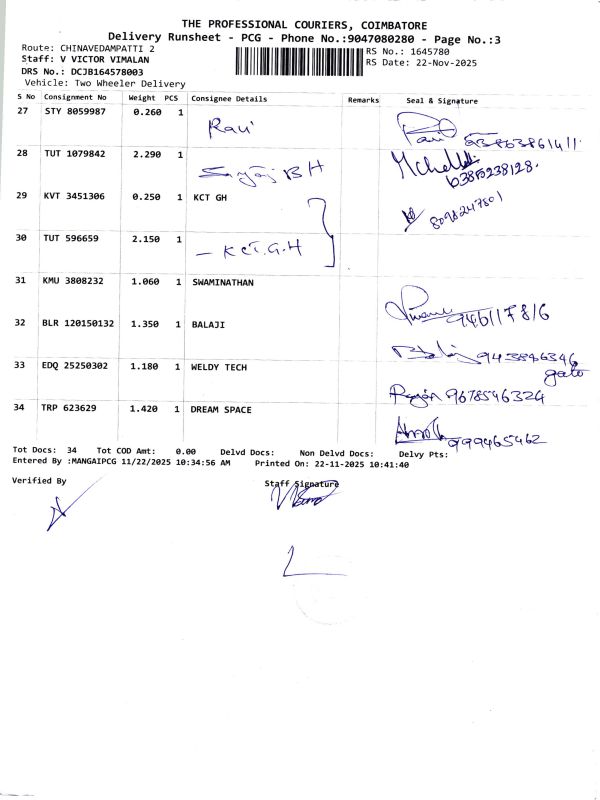 THE PROFESSIONAL COURIERS, COIMBATORE
Delivery Runsheet - PCG - Phone No.:9047080280 - Page No.:3
Route: CHINAVEDAMPATTI 2
Staff: V VICTOR VIMALAN
DRS No.: DCJB164578003
Vehicle: Two Wheeler Delivery
RS No.: 1645780
RS Date: 22-Nov-2025
S No Consignment No Weight PCS Consignee Details Remarks Seal & Signature
27 STY 8059987 0.260 1 Ravi
28 TUT 1079842 2.290 1 BH
29 KVT 3451306 0.250 1 KCT GH 8098247801
30 TUT 596659 2.150 1 - KCT.G.H
31 KMU 3808232 1.060 1 SWAMINATHAN
32 BLR 120150132 1.350 1 BALAJI
33 EDQ 25250302 1.180 1 WELDY TECH 9678546324
34 TRP 623629 1.420 1 DREAM SPACE 999465462
Tot Docs: 34 Tot COD Amt: 0.00 Delvd Docs: Non Delvd Docs: Delvy Pts:
Entered By :MANGAIPCG 11/22/2025 10:34:56 AM Printed On: 22-11-2025 10:41:40
Verified By Staff Signature